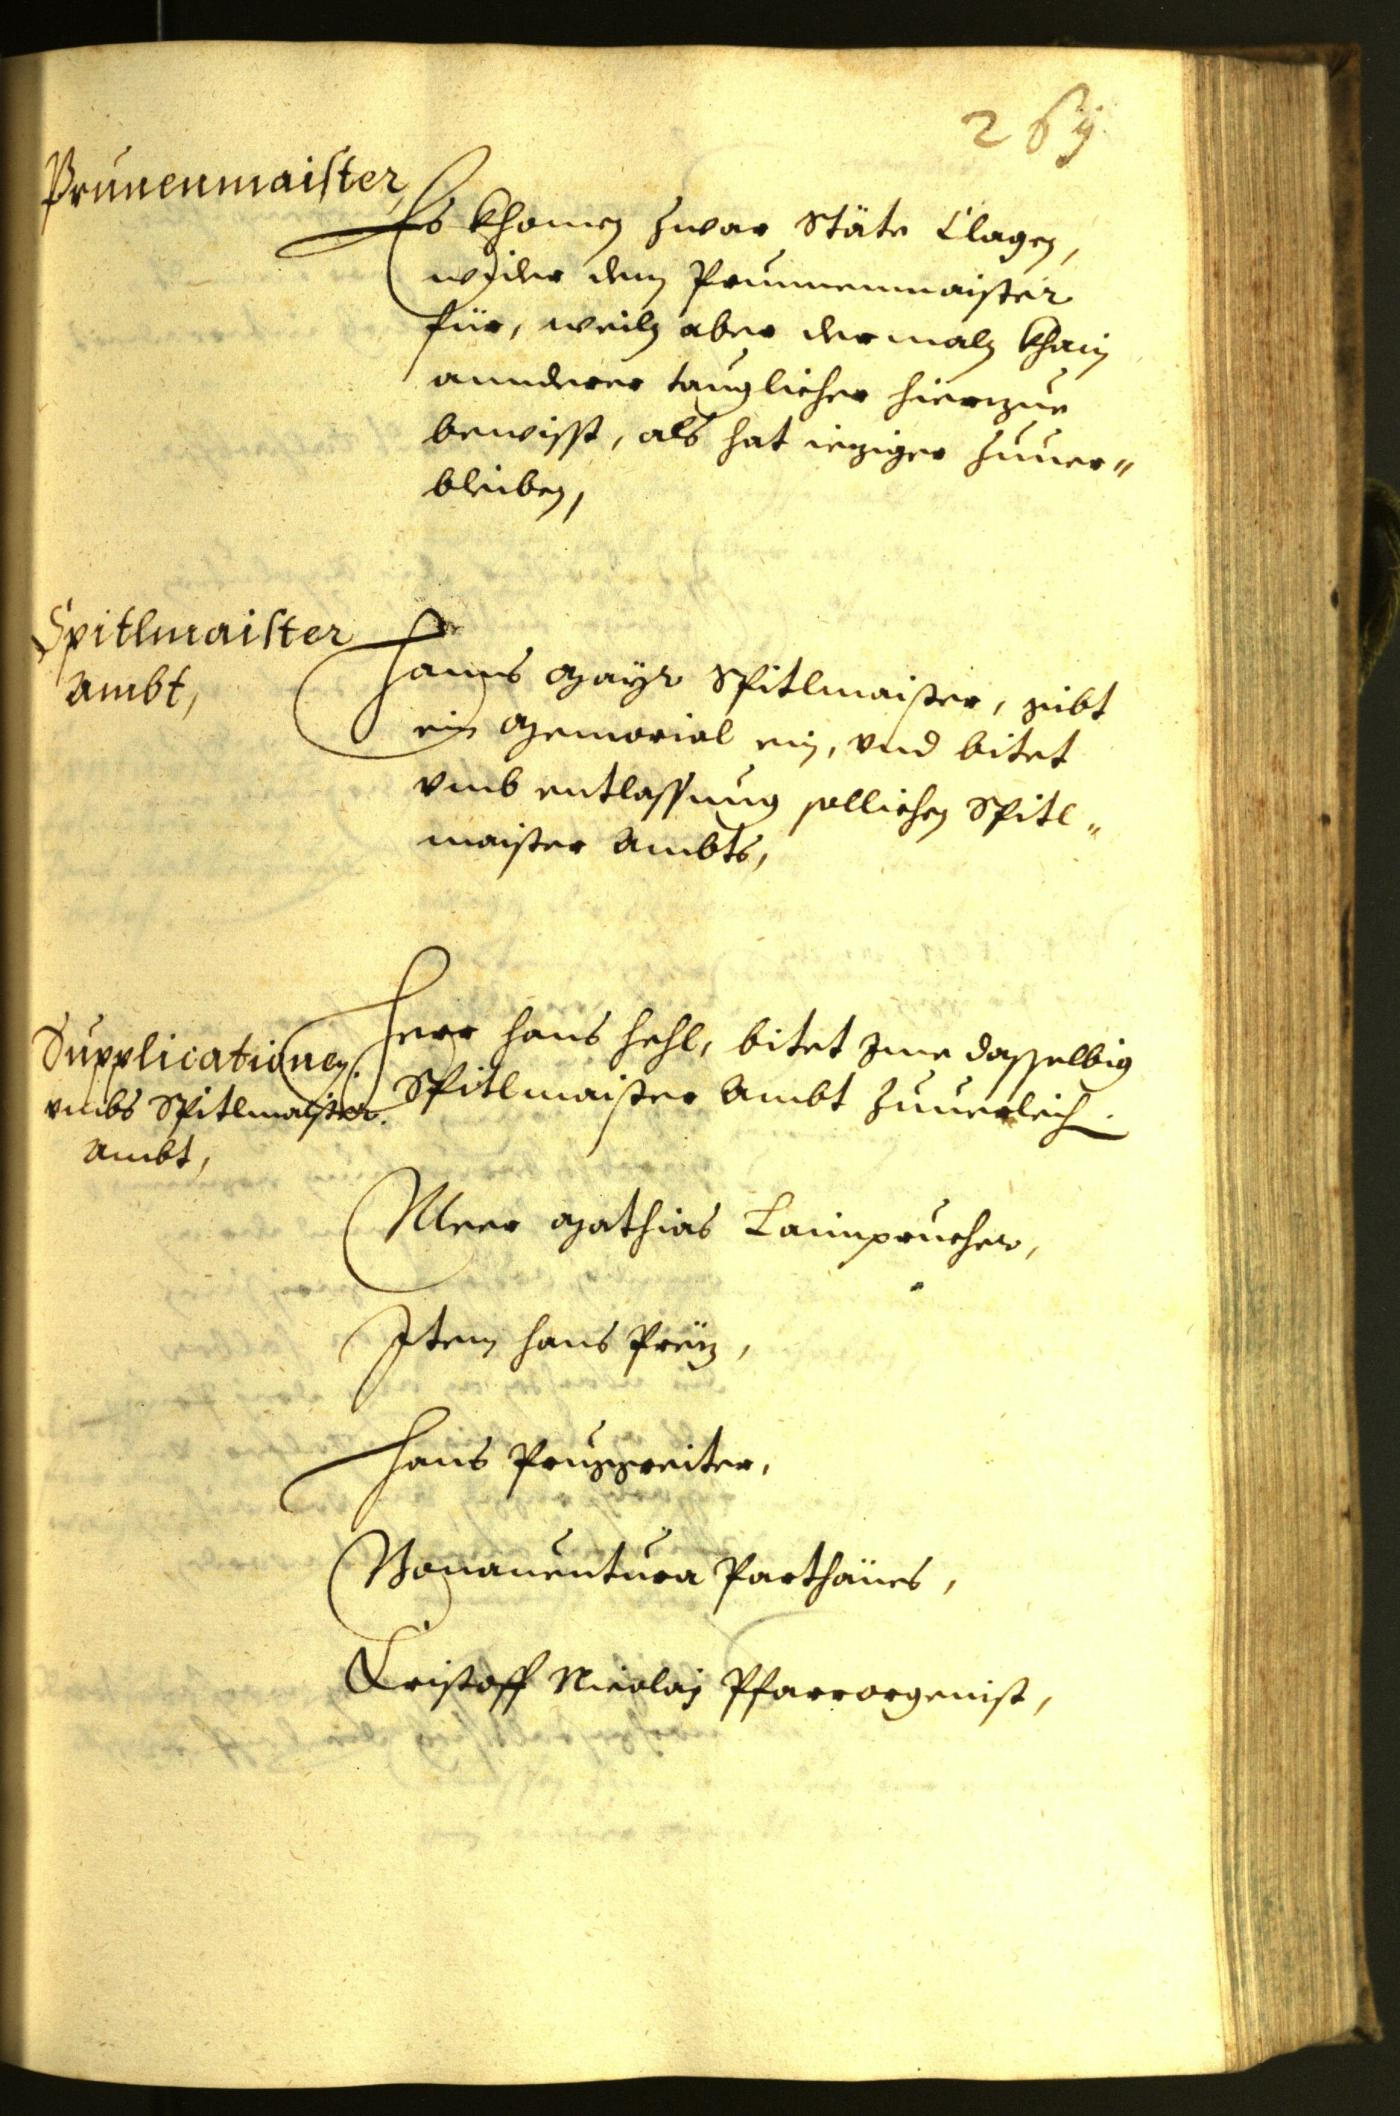 Prunenmaister,
Es khomen zwar Stäte Clagen,
wider dem Prunnenmaister
für, weiln aber dermaln khain
annderer tauglicher hierzue
bewisst, als hat ieziger zuuer„
bleiben,
Spitlmaister
Ambt,
Hanns Mayr Spitlmaister, gibt
ein Memorial ein, vnd bitet
vmb entlassung sollichen Spitl„
maister Ambts,
Supplicationen
vmbs Spitlmaister.
Ambt,
Herr Hans Hehl, bitet Ime dasselbig
Spitlmaister Ambt zuuerleich.
Meer Mathias Laimprucher,
Item Hans Preÿ,
Hans Pruggreiter,
Bonauentura Parthänes,
Cristoff Nicolaj Pfarrorgenist,